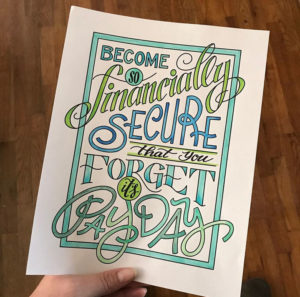 BECOME
so
financially
SECURE
that you
FORGET
it's
PAYDAY